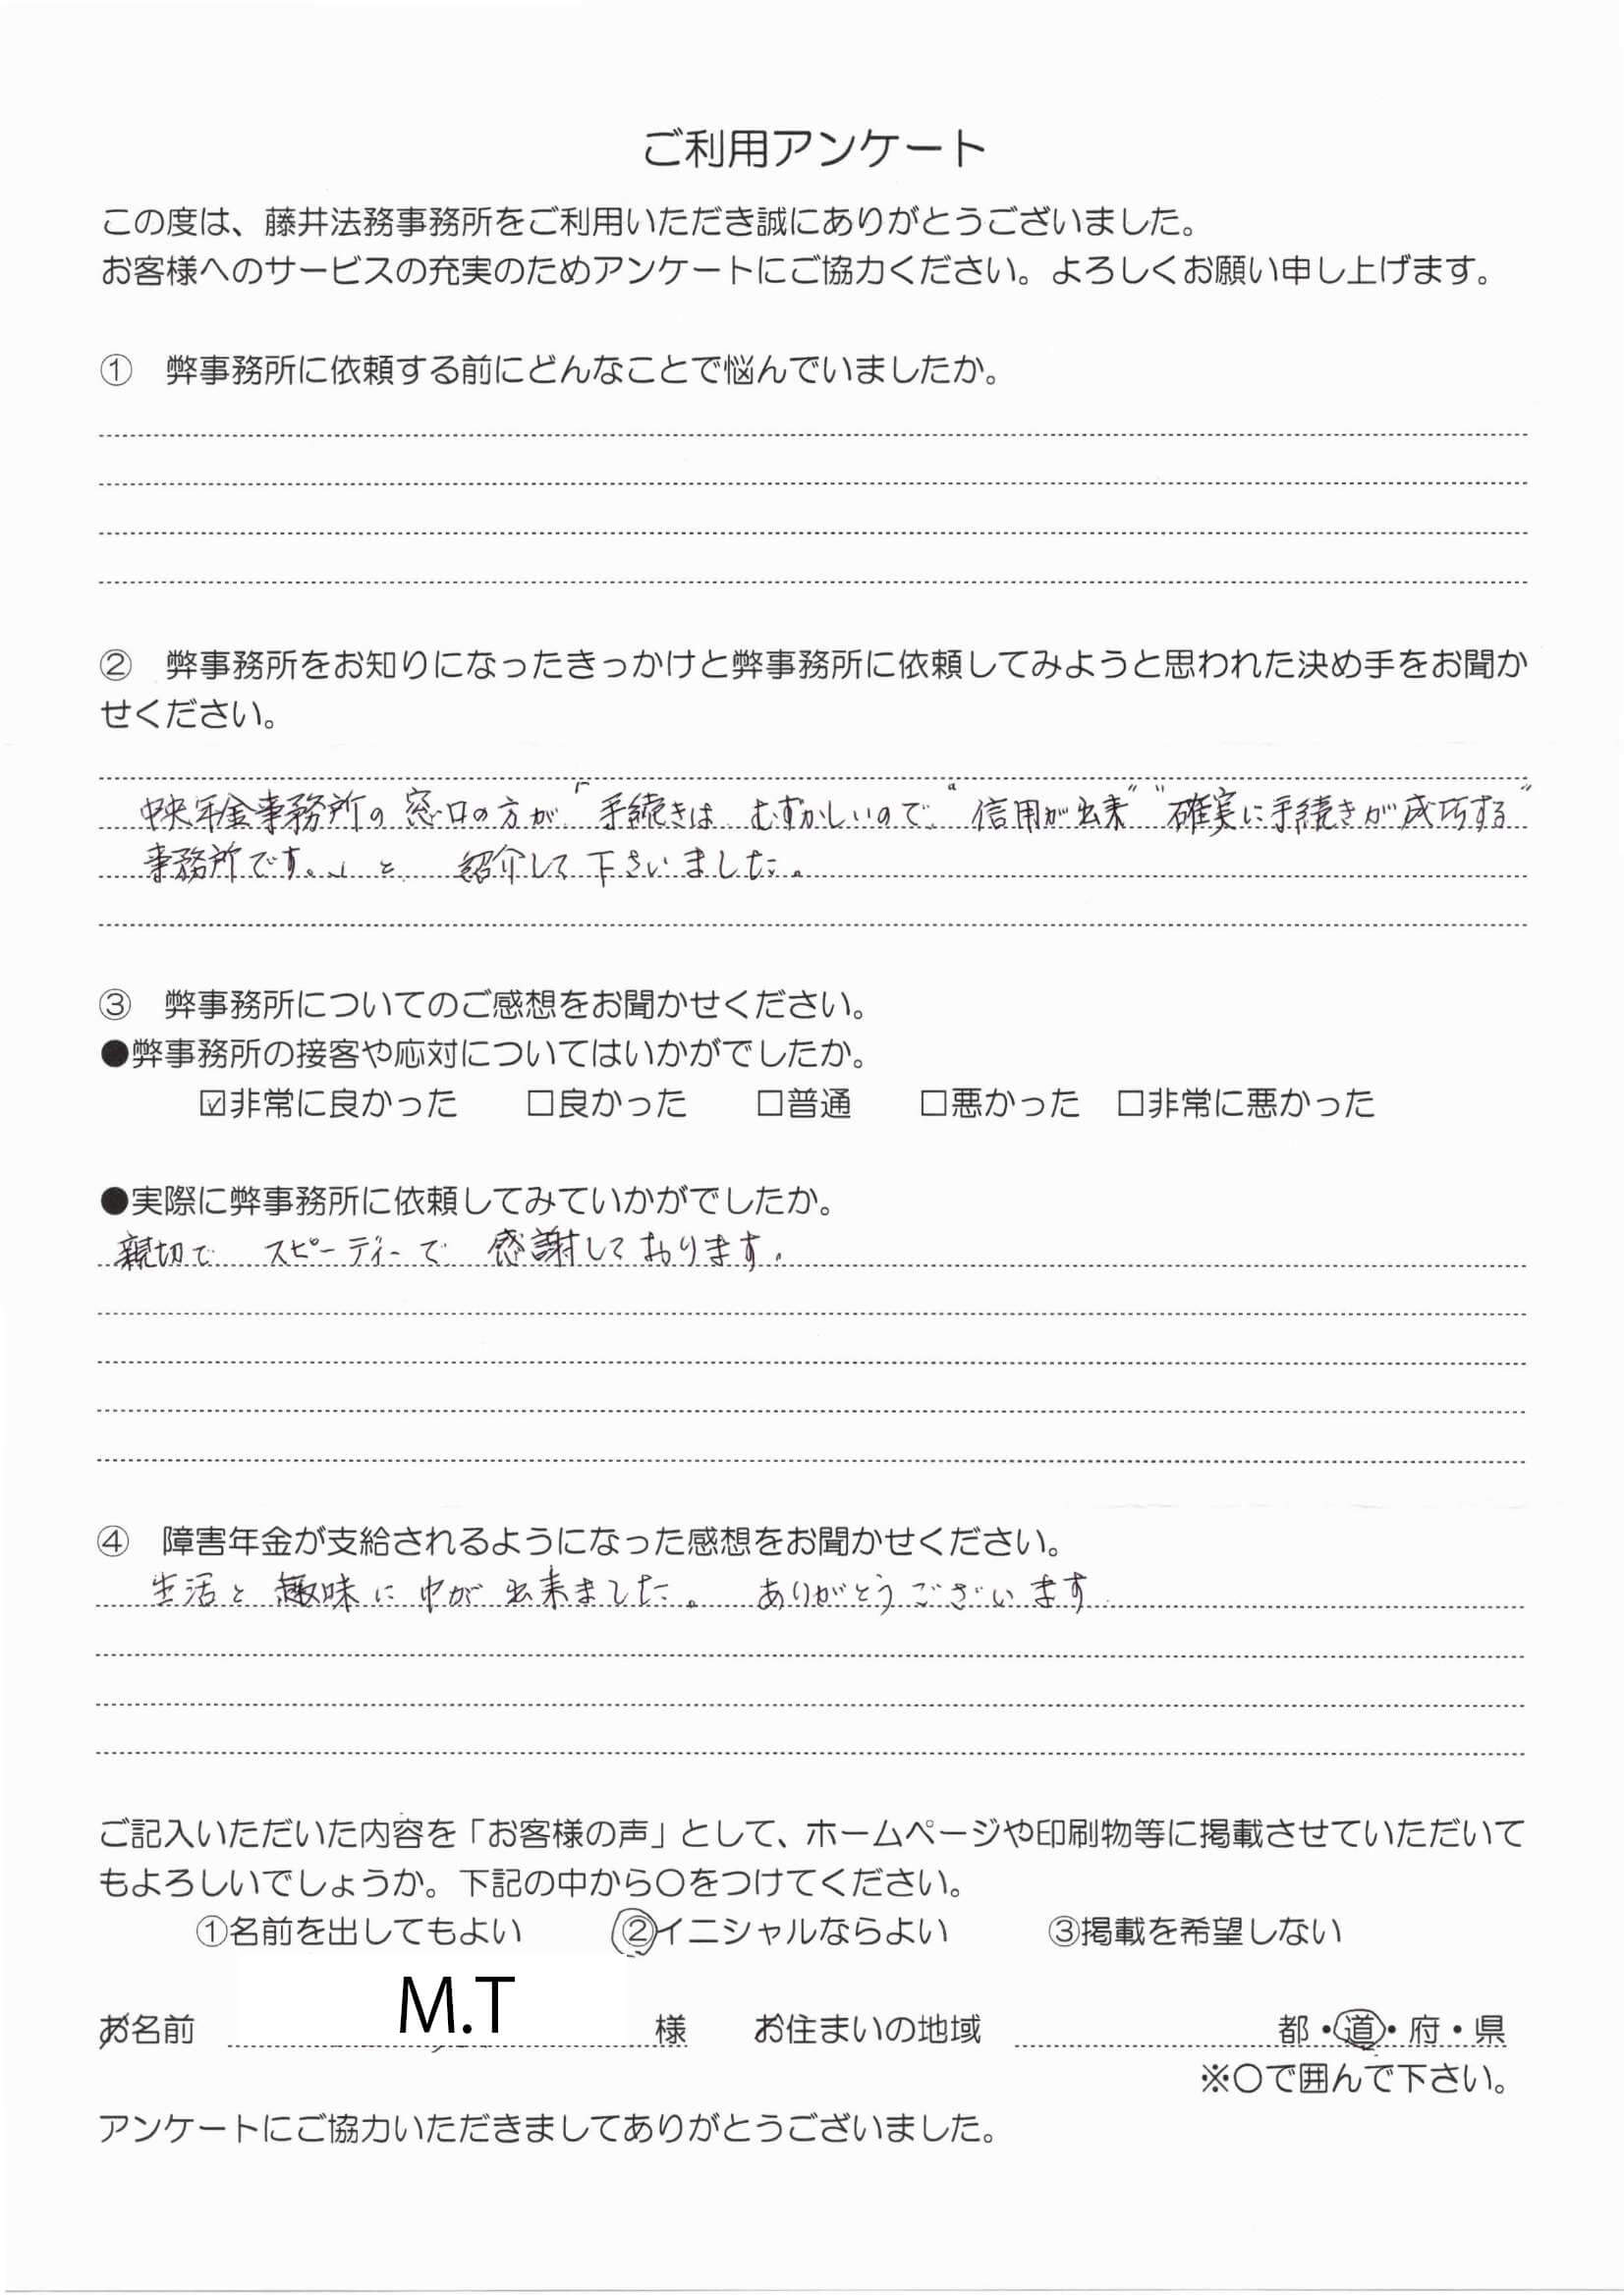 ご利用アンケート
この度は、藤井法務事務所をご利用いただき誠にありがとうございました。
お客様へのサービスの充実のためアンケートにご協力ください。よろしくお願い申し上げます。
① 弊事務所に依頼する前にどんなことで悩んでいましたか。
② 弊事務所をお知りになったきっかけと弊事務所に依頼してみようと思われた決め手をお聞か
せください。
中央年金事務所の窓口の方が「手続きはむずかしいので、“信用が出来”“確実に手続きが成功する”
事務所です。」と、紹介して下さいました。
③ 弊事務所についてのご感想をお聞かせください。
●弊事務所の接客や応対についてはいかがでしたか。
☑非常に良かった □良かった □普通 □悪かった □非常に悪かった
●実際に弊事務所に依頼してみていかがでしたか。
親切で スピーディーで 感謝しております。
④ 障害年金が支給されるようになった感想をお聞かせください。
生活と趣味に 巾が出来ました。 ありがとうございます
ご記入いただいた内容を「お客様の声」として、ホームページや印刷物等に掲載させていただいて
もよろしいでしょうか。下記の中から〇をつけてください。
①名前を出してもよい ②イニシャルならよい ③掲載を希望しない
お名前 M.T 様 お住まいの地域 都・道・府・県
※〇で囲んで下さい。
アンケートにご協力いただきましてありがとうございました。